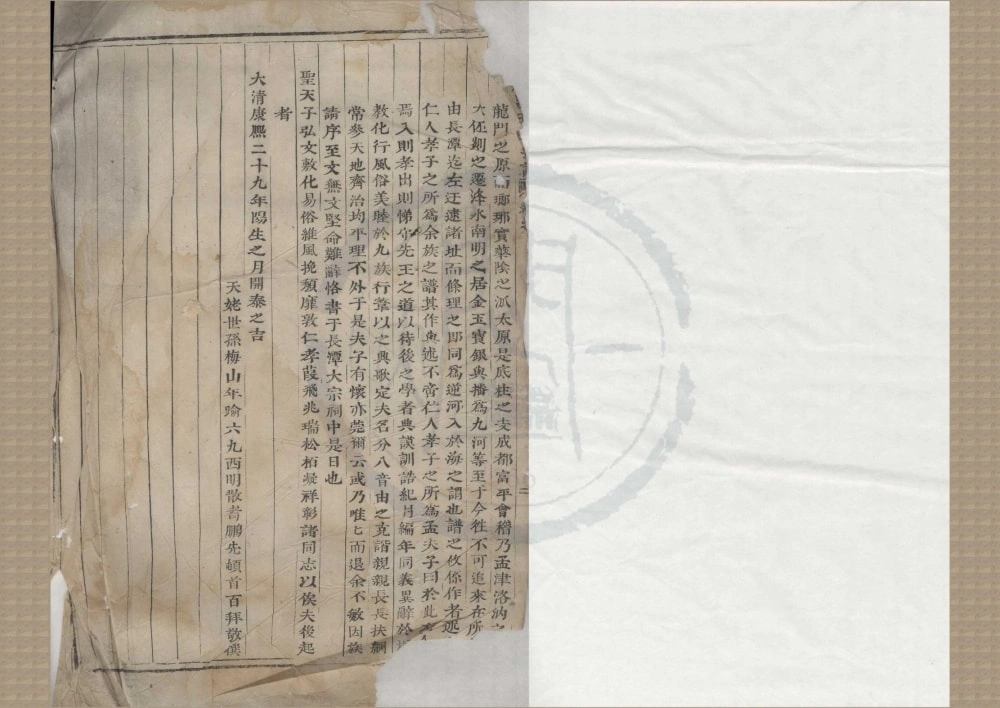 龍門之原而瑯琊實華陰之派太原是底柱之支成都富平會稽乃孟津洛汭之
大伾剡之遷洚水南明之居金玉寶銀奥播為九河等至于今徃不可追來在所
由長潭迄左迂遠諸址而條理之即同為逆河入於海之謂也譜之攸係作者述
仁人孝子之所為余族之譜其作與述不啻仁人孝子之所為孟夫子曰於此有
焉入則孝出則悌守先王之道以待後之學者典謨訓誥紀月編年同義異辭於
教化行風俗美睦於九族行葦以之興歌定夫名分八音由之克諧親親長長扶綱
常參天地齊治均平理不外于是夫子有懷亦莞爾云或乃唯匕而退余不敏因族
請序至文無文堅命難辭恪書于長潭大宗祠中是日也
聖天子弘文敷化易俗維風挽頹靡敦仁孝葭飛兆瑞松栢凝祥彰諸同志以俟夫後起
者
大清康熈二十九年陽生之月開泰之吉
天姥世孫梅山年踰六九西明散耆鵬先頓首百拜敬僎